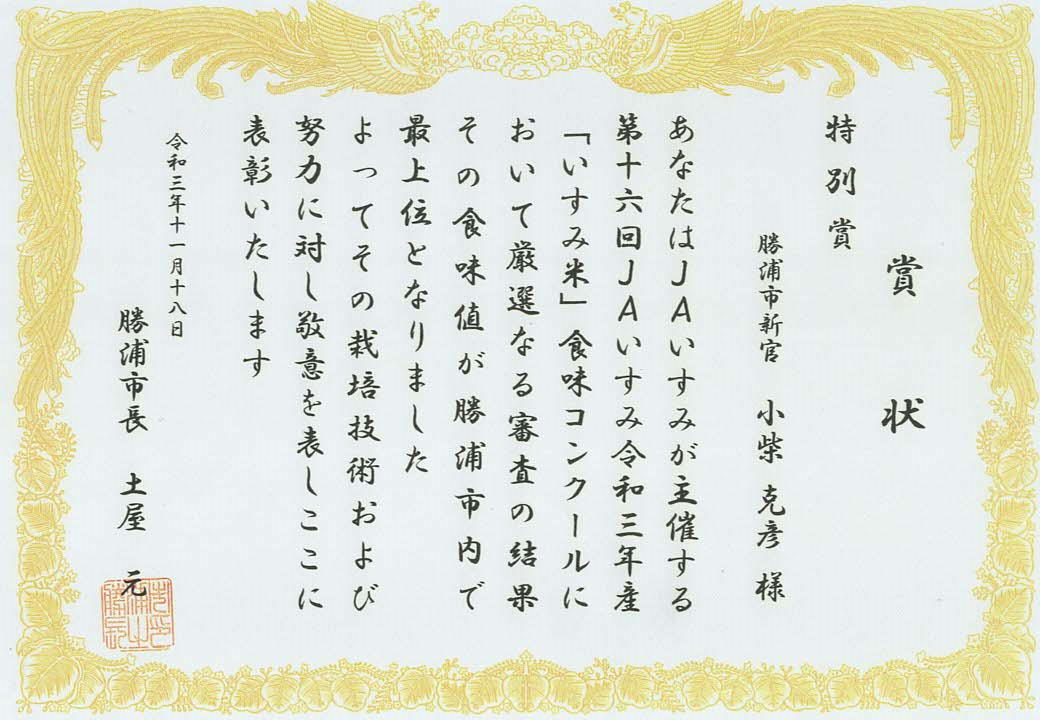 賞状
特別賞
勝浦市新官 小柴 克彦 様
あなたはJAいすみが主催する
第十六回JAいすみ令和三年産
「いすみ米」食味コンクールに
おいて厳選なる審査の結果
その食味値が勝浦市内で
最上位となりました
よってその栽培技術および
努力に対し敬意を表しここに
表彰いたします
令和三年十一月十八日
勝浦市長 土屋 元